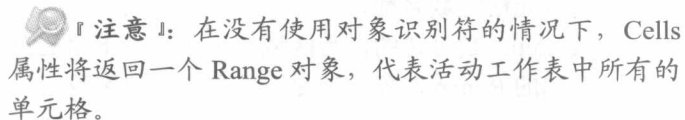 『注意』：在没有使用对象识别符的情况下，Cells
属性将返回一个 Range 对象，代表活动工作表中所有的
单元格。